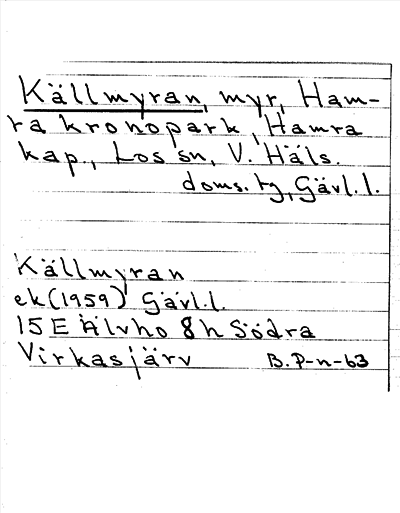 Källmyran, myr, Ham-
ra kronopark, Hamra
kap., Los sn, V. Häls.
doms. tg, Gävl.l.
Källmyran
ek (1959) Gävl.l.
15E Älvho 8h Södra
Virkasjärv B.P-n-63